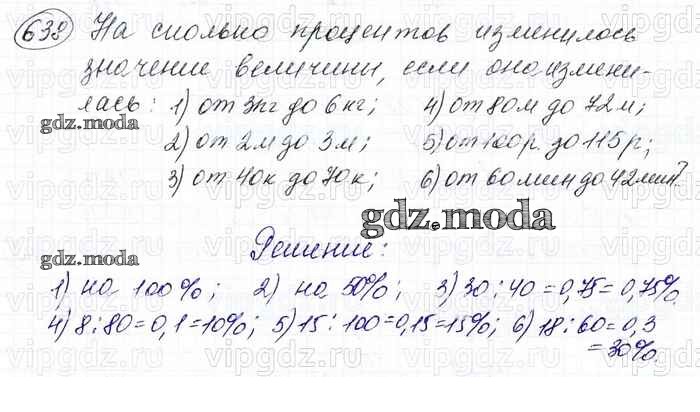 638 На сколько процентов изменилось
значение величины, если она измени-
лась: 1) от 3кг до 6кг; 4) от 80м до 72м;
gdz.moda
2) от 2м до 3м; 5) от 100р. до 115р;
3) от 40к до 70к; 6) от 60мин до 42мин?
gdz.moda
Решение:
gdz.moda
1) на 100%; 2) на 50%; 3) 30:40=0,75=0,75%
4) 8:80=0,1=10%; 5) 15:100=0,15=15%; 6) 18:60=0,3
=30%.
vipgdz.ru